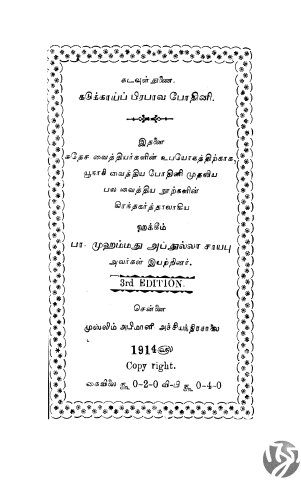 கடவுள் துணை.
கடுக்காய்ப் பிரபாவ போதினி.
இதனை
சுதேச வைத்தியர்களின் உபயோகத்திற்காக,
யூநாநி வைத்திய போதினி முதலிய
பல வைத்திய நூற்களின்
கிரந்தகர்த்தாவாகிய
ஹக்கீம்
பா. முஹம்மது அப்துல்லா சாயபு
அவர்கள் இயற்றினர்.
3rd EDITION.
சென்னை
முஸ்லிம் அபிமானி அச்சியந்திரசாலை
1914
Copy right.
0-2-0 வி-பி ரூ 0-4-0